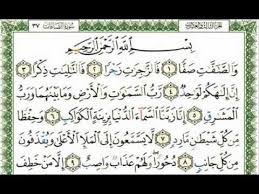 ٣٧ سُورَةُ الصَّافَّاتِ الجزء الثالث والعشرون
بِسْمِ اللَّهِ الرَّحْمَٰنِ الرَّحِيمِ
وَالصَّٰٓفَّٰتِ صَفًّا ١ فَالزَّٰجِرَٰتِ زَجْرًا ٢ فَالتَّٰلِيَٰتِ ذِكْرًا ٣
إِنَّ إِلَٰهَكُمْ لَوَٰحِدٌ ٤ رَّبُّ السَّمَٰوَٰتِ وَالْأَرْضِ وَمَا بَيْنَهُمَا وَرَبُّ
الْمَشَٰرِقِ ٥ إِنَّا زَيَّنَّا السَّمَآءَ الدُّنْيَا بِزِينَةٍ الْكَوَاكِبِ ٦ وَحِفْظًا
مِّن كُلِّ شَيْطَٰنٍ مَّارِدٍ ٧ لَّا يَسَّمَّعُونَ إِلَى الْمَلَإِ الْأَعْلَىٰ وَيُقْذَفُونَ
مِن كُلِّ جَانِبٍ ٨ دُحُورًا وَلَهُمْ عَذَابٌ وَاصِبٌ ٩ إِلَّا مَنْ خَطِفَ